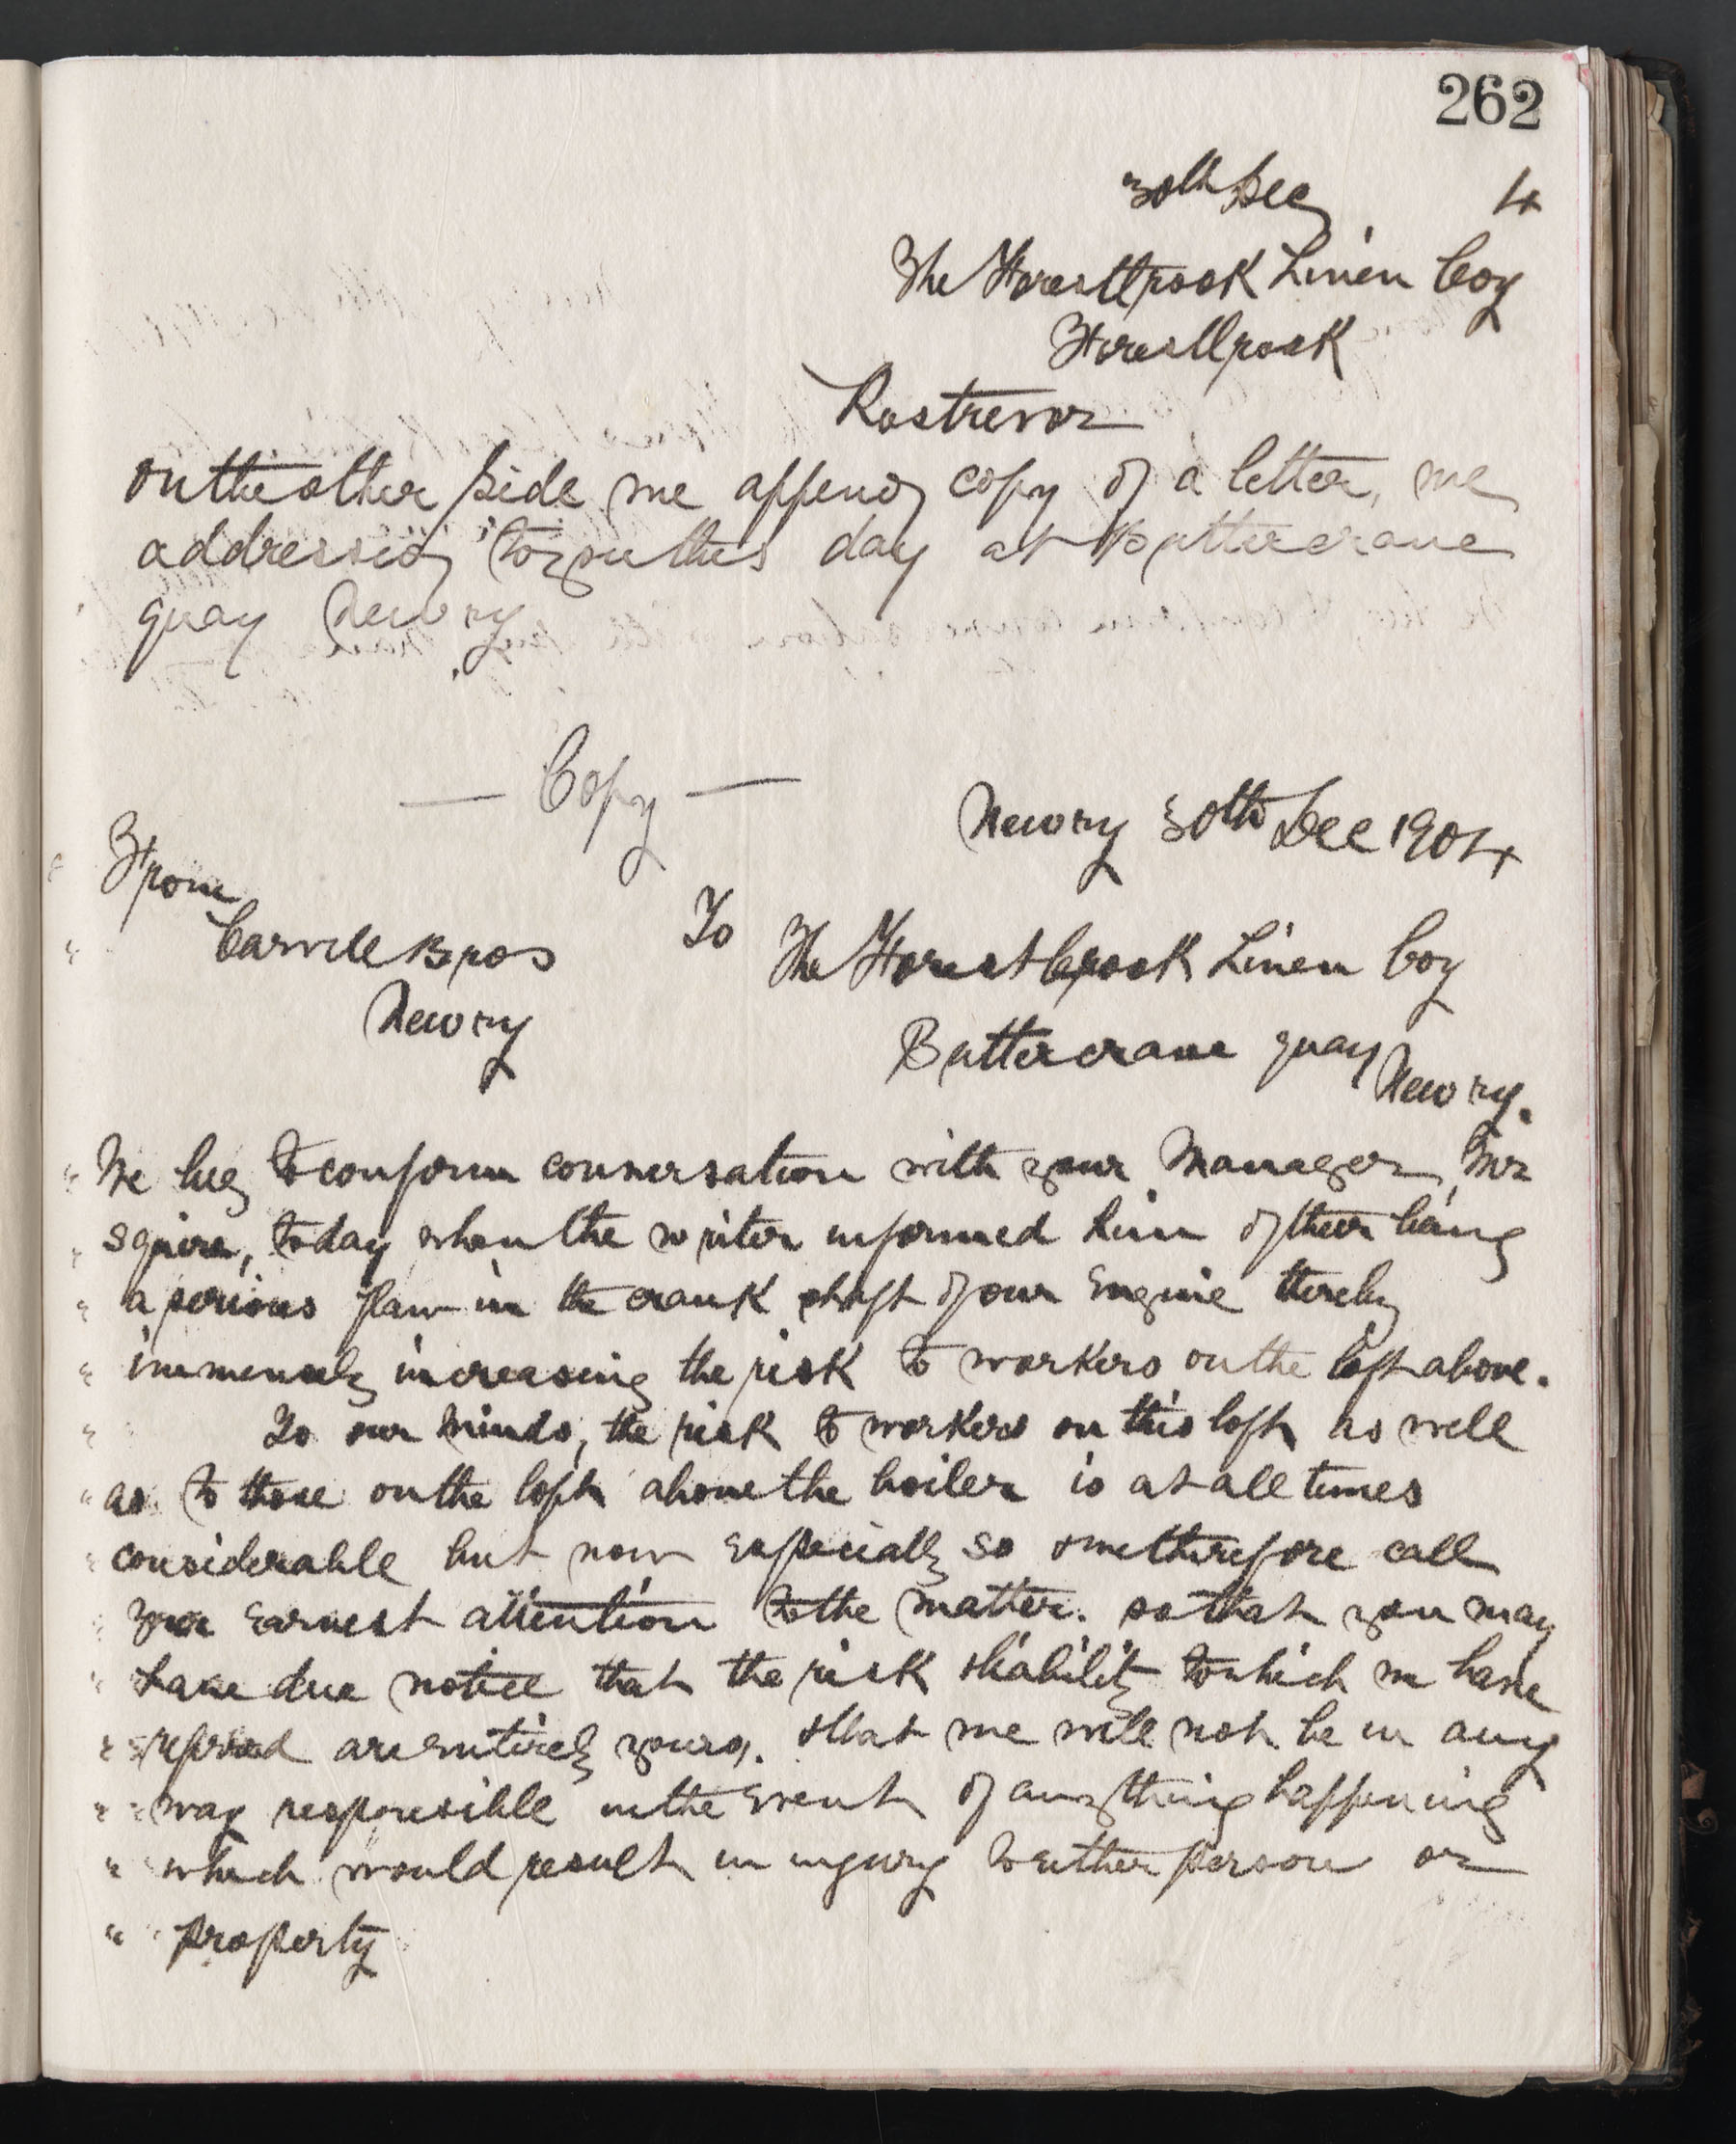 262
30th Dec 4
The Forestbrook Linen Coy
Forestbrook
Rostrevor
On the other side we append copy of a letter, we
addressed to you this day at Buttercrane
quay Newry.
— Copy —
Newry 30th Dec 1904
From
Carvill Bros
Newry
To The Forestbrook Linen Coy
Buttercrane quay Newry.
" We beg to confirm conversation with your Manager, Mr
" Squire, today when the writer informed him of their being
" a serious flaw in the crank shaft of our Engine thereby
" immensely increasing the risk to workers on the loft above.
" To our minds, the risk to workers on this loft as well
" as to those on the loft above the boiler is at all times
" considerable but now Especially so & we therefore call
" your Earnest attention to the matter. so that you may
" have due notice that the risk & liability to which we have
" referred are entirely yours. & that we will not be in any
" way responsible in the Event of anything happening
" which would result in injury to either person or
" property